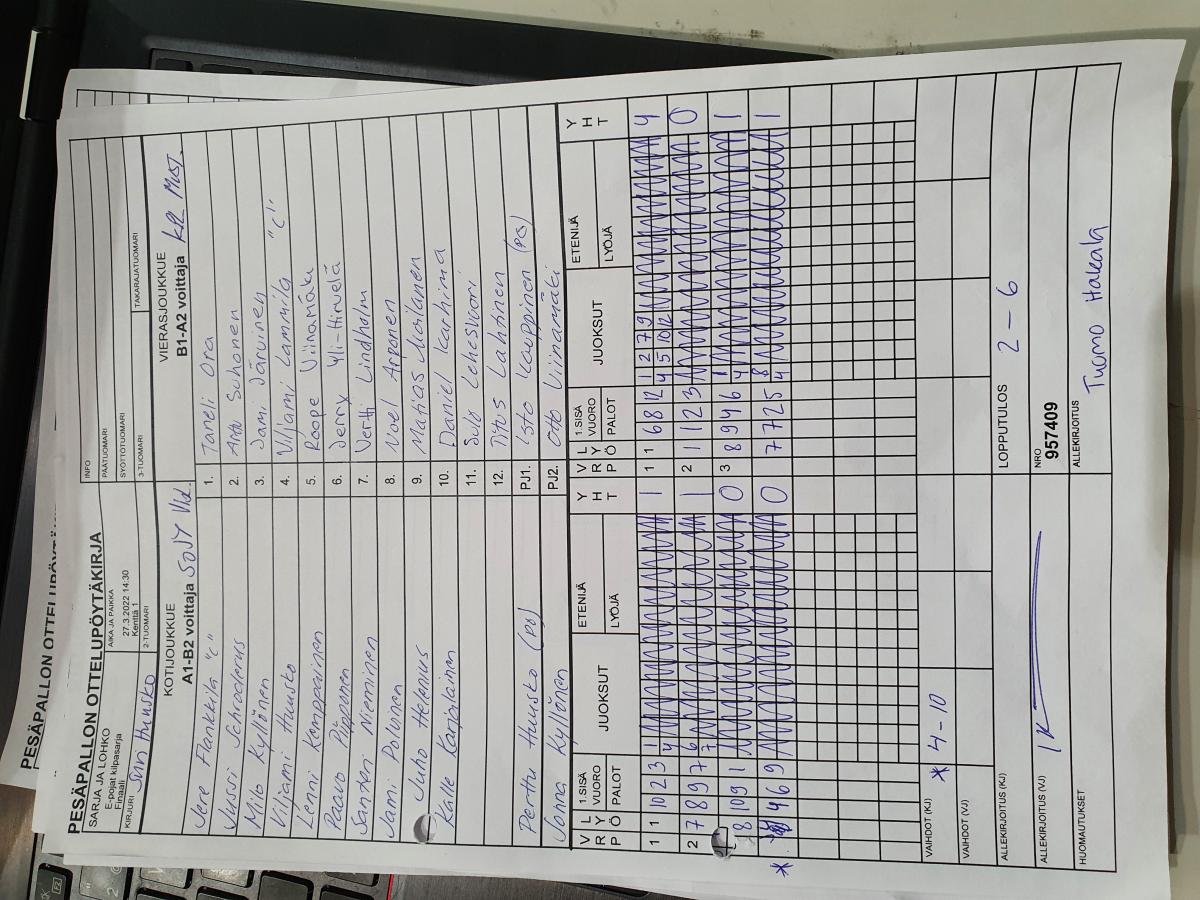 PESÄPALLON OTTELUPÖYTÄ
PESÄPALLON OTTELUPÖYTÄKIRJA
SARJA JA LOHKO
E-pojat kilpasarja
Finaali
AIKA JA PAIKKA
27.3.2022 14:30
Kenttä 1
INFO
PÄÄTUOMARI
SYÖTTÖTUOMARI
KIRJURI
Suvi Huusko
2-TUOMARI
3-TUOMARI
TAKARAJATUOMARI
KOTIJOUKKUE
A1-B2 voittaja SoJy Vld.
VIERASJOUKKUE
B1-A2 voittaja KPL Must.
Jere Flankkila "C" 1. Taneli Ora
Jussi Schroderus 2. Anttu Suhonen
Milo Kyllönen 3. Jami Järvinen
Viljami Huusko 4. Viljami Lammila "C"
Lenni Komppainen 5. Roope Viinamäki
Paavo Piipponen 6. Jerry Yli-Hirvelä
Santeri Nieminen 7. Vertti Lindholm
Jami Polvinen 8. Noel Arponen
Juho Helenius 9. Matias Moilanen
Kalle Karjalainen 10. Daniel Karhima
11. Sulo Lehesvuori
12. Titus Lahtinen
Perttu Huusko (PJ) PJ1. Isto Kauppinen (PCS)
Jonna Kyllönen PJ2. Otto Viinamäki
VRP LYÖ 1.SISÄ VUORO PALOT JUOKSUT ETENIJÄ LYÖJÄ YHT
VRP LYÖ 1.SISÄ VUORO PALOT JUOKSUT ETENIJÄ LYÖJÄ YHT
1 1 10 2 3 1 4 1
1 1 6 8 12 1 2 7 9 4 5 10 12 4
2 7 8 9 7 6 7 1
2 1 1 12 3 0
8 10 9 1 0
3 8 9 4 6 1 4 1
* 4 6 9 0
7 7 2 5 8 4 1
VAIHDOT (KJ) * 4-10
VAIHDOT (VJ)
ALLEKIRJOITUS (KJ)
LOPPUTULOS 2 - 6
ALLEKIRJOITUS (VJ)
NRO
957409
HUOMAUTUKSET
ALLEKIRJOITUS
Tuomo Hakala